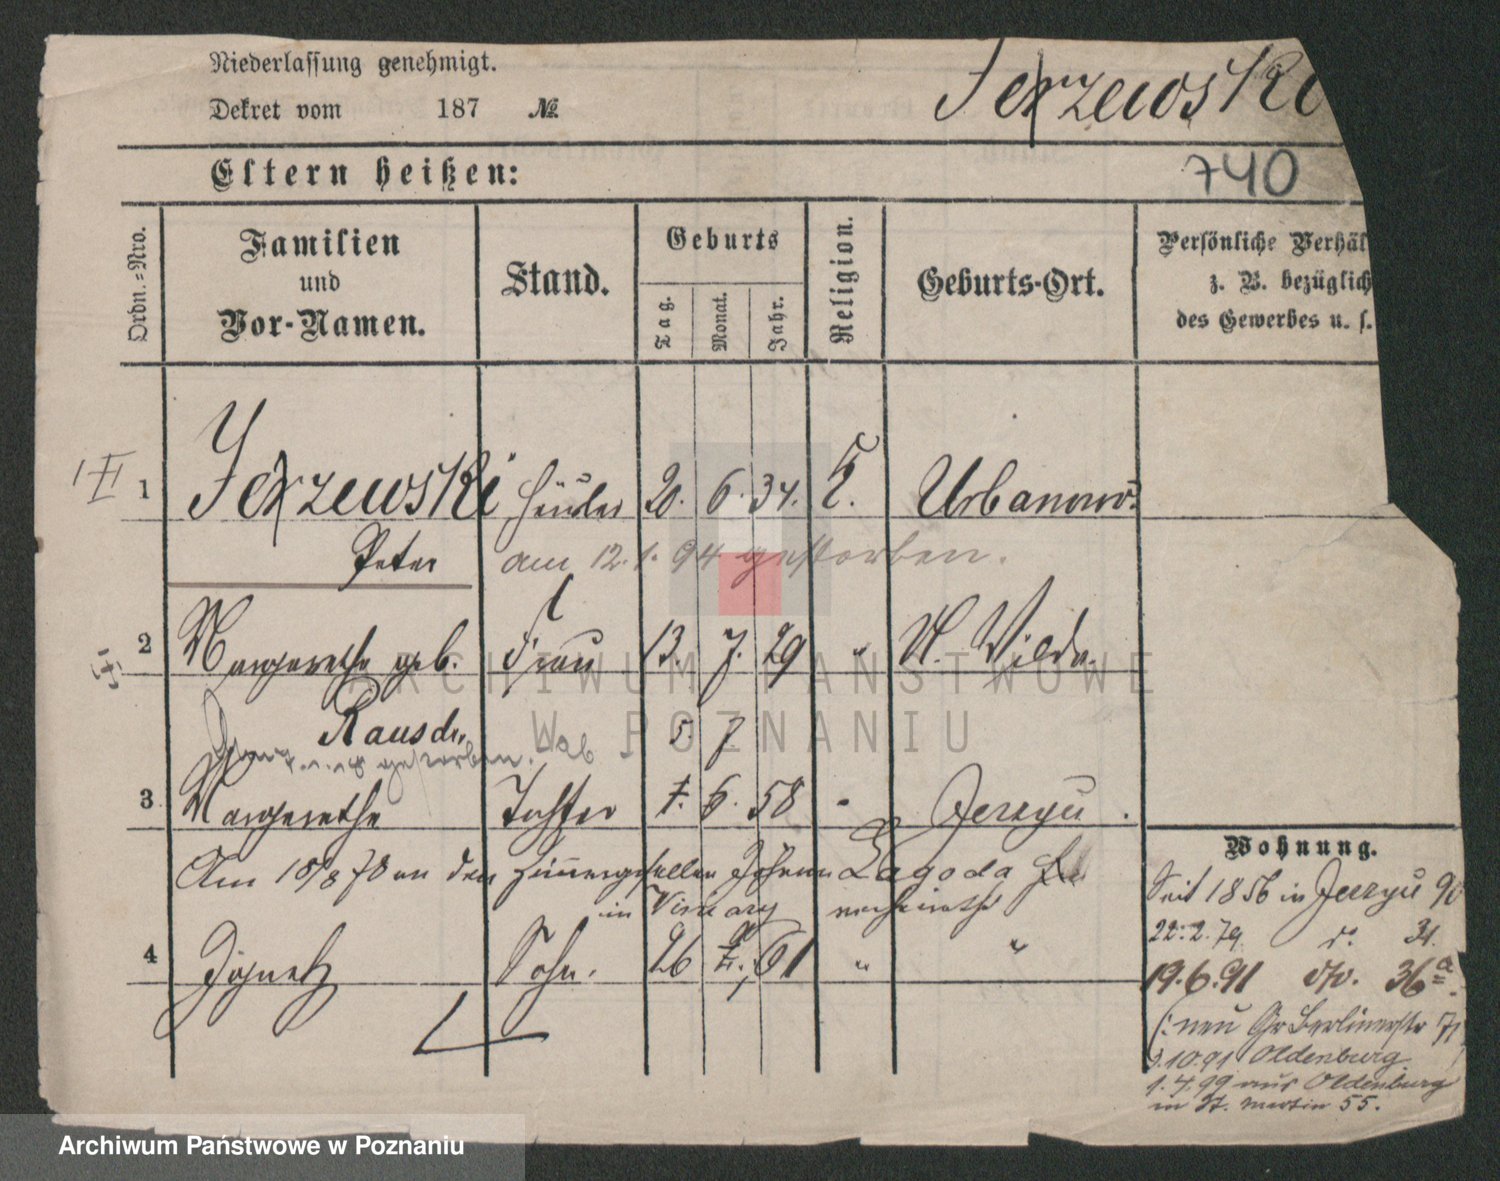 Niederlassung genehmigt.
Dekret vom 187 №
Jerzewski
740
Eltern heißen:
Ordn.-Nro.
Familien
und
Vor-Namen.
Stand.
Geburts
Tag.
Monat.
Jahr.
Religion.
Geburts-Ort.
Persönliche Verhäl
z. B. bezüglich
des Gewerbes u. s.
1 Jerzewski Häusler 20. 6. 34. K. Urbanowo
Peter am 12.1.94 gestorben.
2 Margarethe geb. Frau 13. 7. 29 " St. Wilda
Rausch 5. 7
gestorben.
3 Margarethe Tochter 7. 6. 58 Jerzyce.
Am 18/8 78 an den Zimmergesellen Johann Lagoda
in verheirathet
4 Ignatz Sohn. 26 7. 61 " "
Wohnung.
Seit 1856 in Jerzyce 90
22.2.79 do. 31.
19.6.91 dto. 36a.
(: neu Gr Berlinerstr 71
3.10.91 Oldenburg
1.4.99 aus Oldenburg
in St. Martin 55.
ARCHIWUM PAŃSTWOWE
W POZNANIU
Archiwum Państwowe w Poznaniu